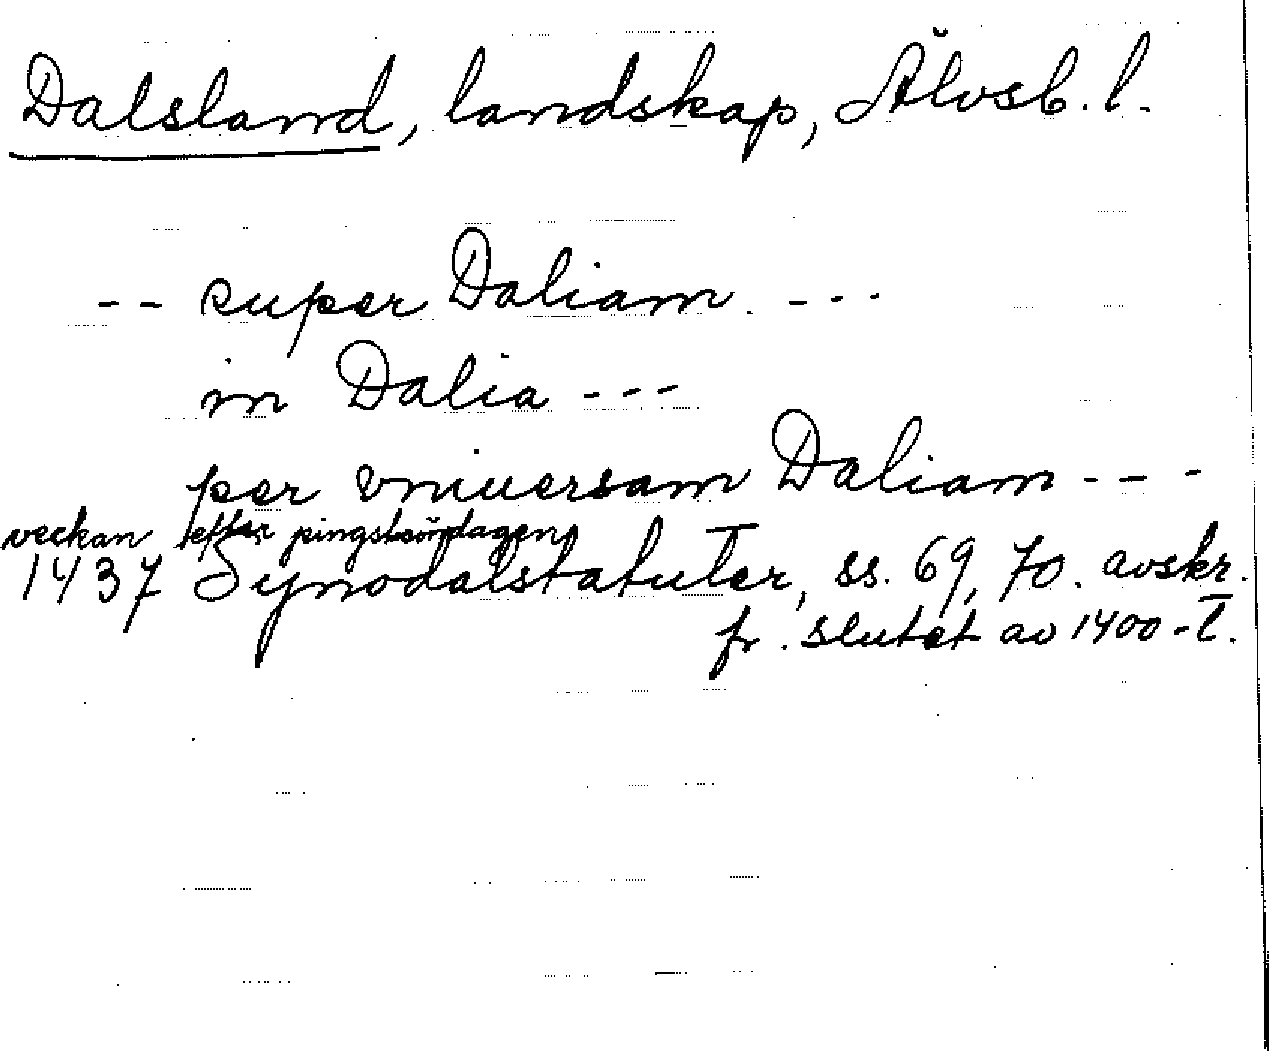 Dalsland, landskap, Älvsb. l.
-- super Daliam. ---
in Dalia ---
per vniuersam Daliam ---
veckan efter pingstsöndagen
1437 Synodalstatuter, ss. 69, 70. avskr.
fr. slutet av 1400-t.